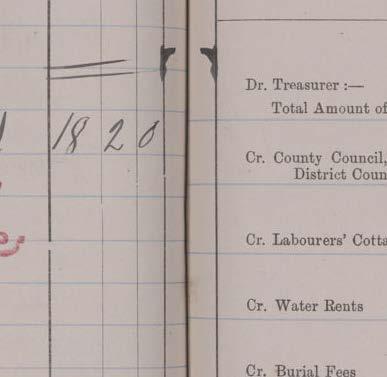 18 2 0
Dr. Treasurer :—
Total Amount of
Cr. County Council,
District Coun
Cr. Labourers' Cotta
Cr. Water Rents
Cr. Burial Fees